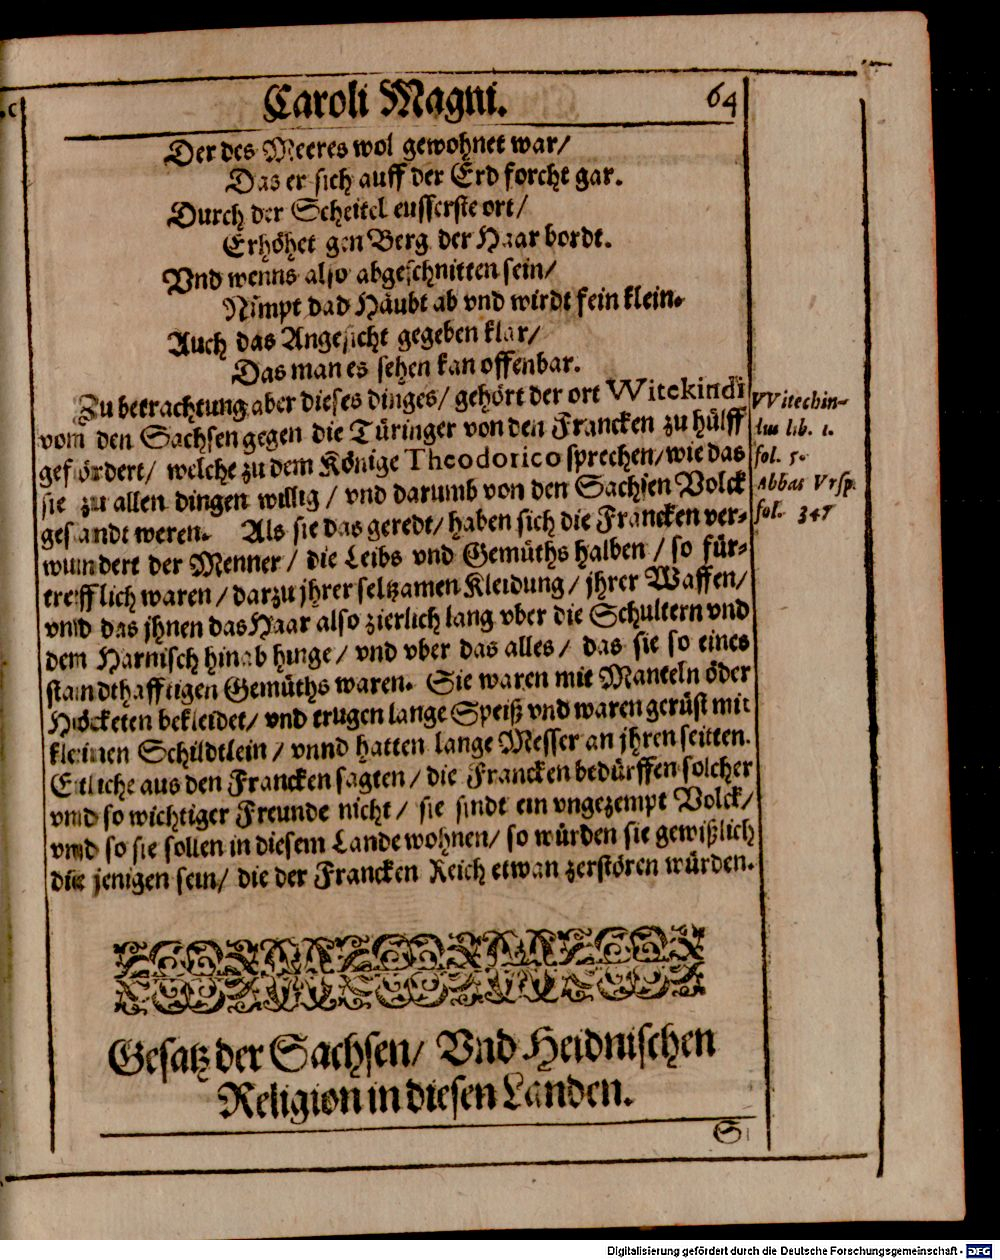 Caroli Magni. 64
Der des Meeres wol gewohnet war/
Das er sich auff der Erd forcht gar.
Durch der Scheitel eusserste ort/
Erhöhet gen Berg der Haar bordt.
Vnd wenns also abgeschnitten sein/
Nimpt dad Häubt ab vnd wirdt fein klein.
Auch das Angesicht gegeben klar/
Das man es sehen kan offenbar.
Zu betrachtung aber dieses dinges/ gehört der ort Witekindi
vom den Sachsen gegen die Türinger von den Francken zu hülff
gefördert/ welche zu dem Könige Theodorico sprechen/ wie das
sie zu allen dingen willig / vnd darumb von den Sachsen Volck
gesandt weren. Als sie das geredt/ haben sich die Francken ver-
wundert der Menner / die Leibs vnd Gemüths halben / so für-
trefflich waren / darzu jhrer seltzamen Kleidung / jhrer Waffen/
vnd das jhnen das Haar also zierlich lang vber die Schultern vnd
dem Harnisch hinab hinge / vnd vber das alles / das sie so eines
standthafftigen Gemüths waren. Sie waren mit Manteln öder
Höcketen bekleidet/ vnd trugen lange Speiß vnd waren gerüst mit
kleinen Schildtlein / vnnd hatten lange Messer an jhren seitten.
Etliche aus den Francken sagten / die Francken bedürffen solcher
vnd so wichtiger Freunde nicht / sie sindt ein vngezempt Volck/
vnd so sie sollen in diesem Lande wohnen/ so würden sie gewißlich
die jenigen sein/ die der Francken Reich etwan zerstören würden.
Witechin-
dus lib. 1.
fol. 5.
Abbas Vrsp.
fol. 347
Gesatz der Sachsen/ Vnd Heidnischen
Religion in diesen Landen.
S
Digitalisierung gefördert durch die Deutsche Forschungsgemeinschaft - DFG